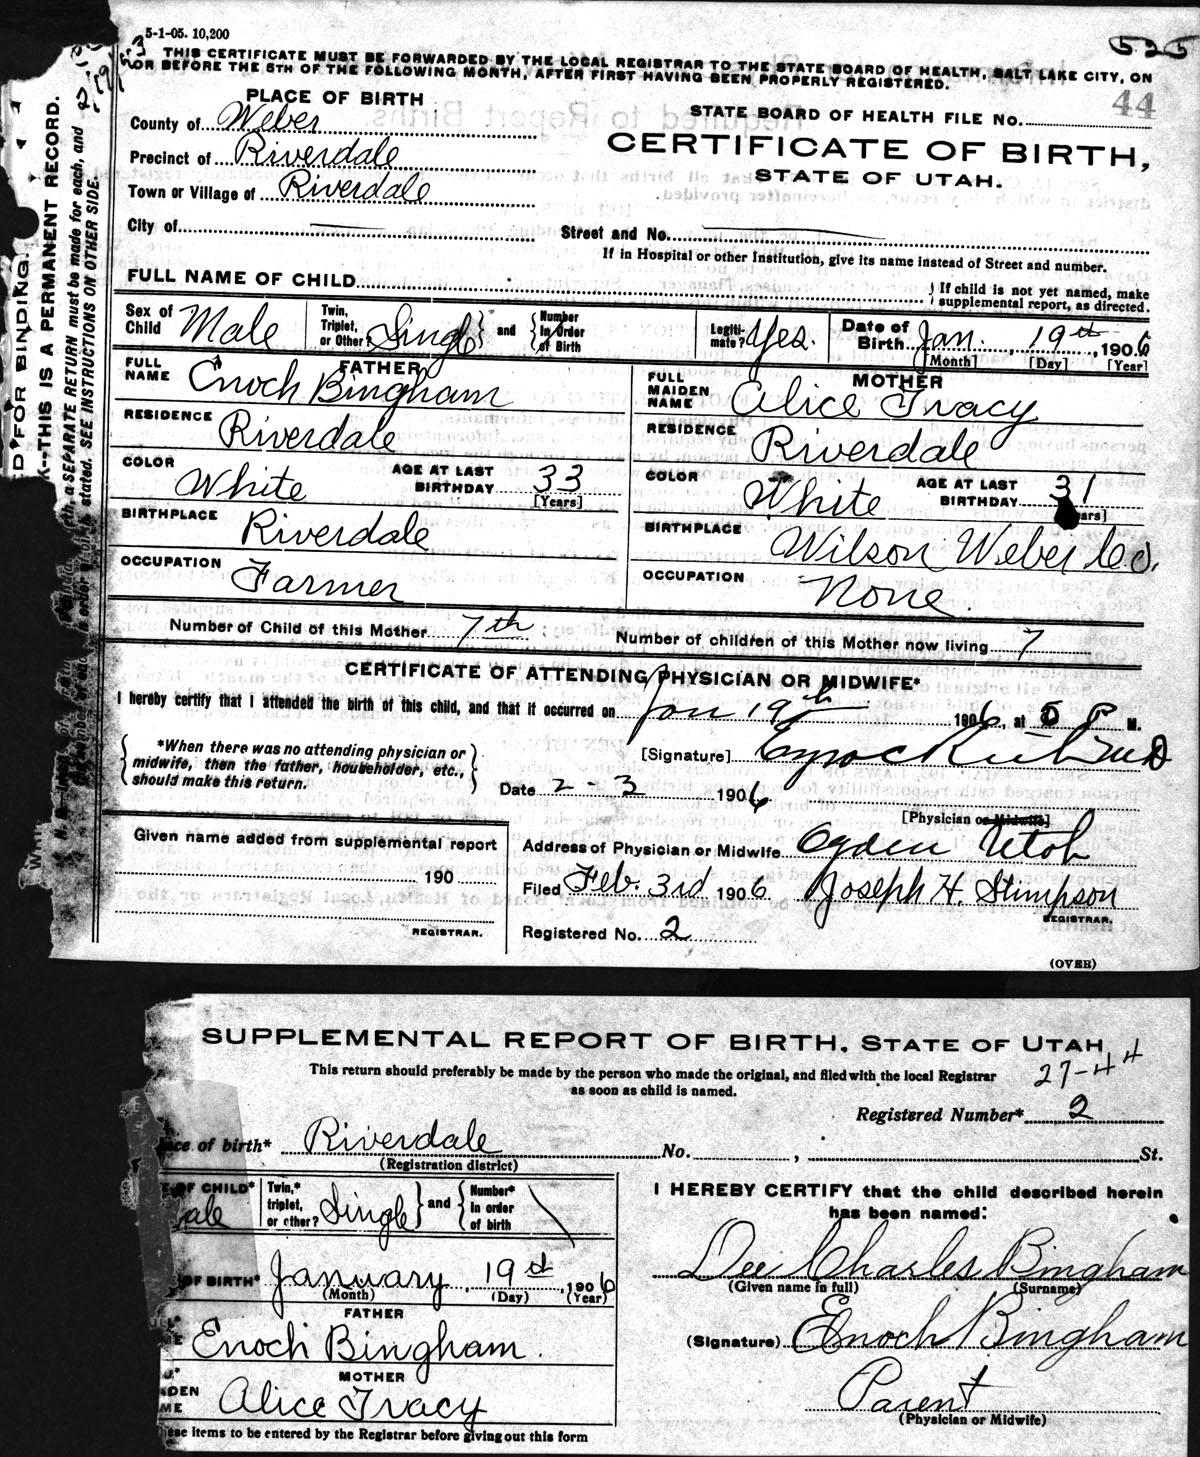 5-1-05. 10,200
525
THIS CERTIFICATE MUST BE FORWARDED BY THE LOCAL REGISTRAR TO THE STATE BOARD OF HEALTH, SALT LAKE CITY, ON
OR BEFORE THE 5TH OF THE FOLLOWING MONTH, AFTER FIRST HAVING BEEN PROPERLY REGISTERED.
44
PLACE OF BIRTH
STATE BOARD OF HEALTH FILE NO.
County of Weber
CERTIFICATE OF BIRTH,
Precinct of Riverdale
STATE OF UTAH.
Town or Village of Riverdale
City of
Street and No.
If in Hospital or other Institution, give its name instead of Street and number.
FULL NAME OF CHILD
If child is not yet named, make
supplemental report, as directed.
Sex of Child Male
Twin, Triplet, or Other? Single and Number in Order of Birth
Legitimate? Yes.
Date of Birth Jan. 19th, 1906
[Month] [Day] [Year]
FATHER
FULL NAME Enoch Bingham
RESIDENCE Riverdale
COLOR White AGE AT LAST BIRTHDAY 33
[Years]
BIRTHPLACE Riverdale
OCCUPATION Farmer
MOTHER
FULL MAIDEN NAME Alice Tracy
RESIDENCE Riverdale
COLOR White AGE AT LAST BIRTHDAY 31
BIRTHPLACE Wilson Weber Co.
OCCUPATION None
Number of Child of this Mother 7th
Number of children of this Mother now living 7
CERTIFICATE OF ATTENDING PHYSICIAN OR MIDWIFE*
I hereby certify that I attended the birth of this child, and that it occurred on Jan 19th 1906, at 5 P M.
*When there was no attending physician or
midwife, then the father, householder, etc.,
should make this return.
[Signature]
Date 2-3 1906
[Physician or Midwife]
Given name added from supplemental report
190
REGISTRAR.
Address of Physician or Midwife Ogden Utah
Filed Feb. 3rd 1906 Joseph H. Stimpson
REGISTRAR.
Registered No. 2
(OVER)
D FOR BINDING.
K--THIS IS A PERMANENT RECORD.
a SEPARATE RETURN must be made for each, and
stated. SEE INSTRUCTIONS ON OTHER SIDE.
SUPPLEMENTAL REPORT OF BIRTH. STATE OF UTAH
This return should preferably be made by the person who made the original, and filed with the local Registrar
as soon as child is named.
27-44
Registered Number* 2
ce of birth* Riverdale No. , St.
(Registration district)
OF CHILD* ale
Twin,* triplet, or other? Single and Number* in order of birth
OF BIRTH* January 19th, 1906
(Month) (Day) (Year)
FATHER
Enoch Bingham.
MOTHER
DEN
ME Alice Tracy
ese items to be entered by the Registrar before giving out this form
I HEREBY CERTIFY that the child described herein
has been named:
Dee Charles Bingham
(Given name in full) (Surname)
(Signature) Enoch Bingham
Parent
(Physician or Midwife)